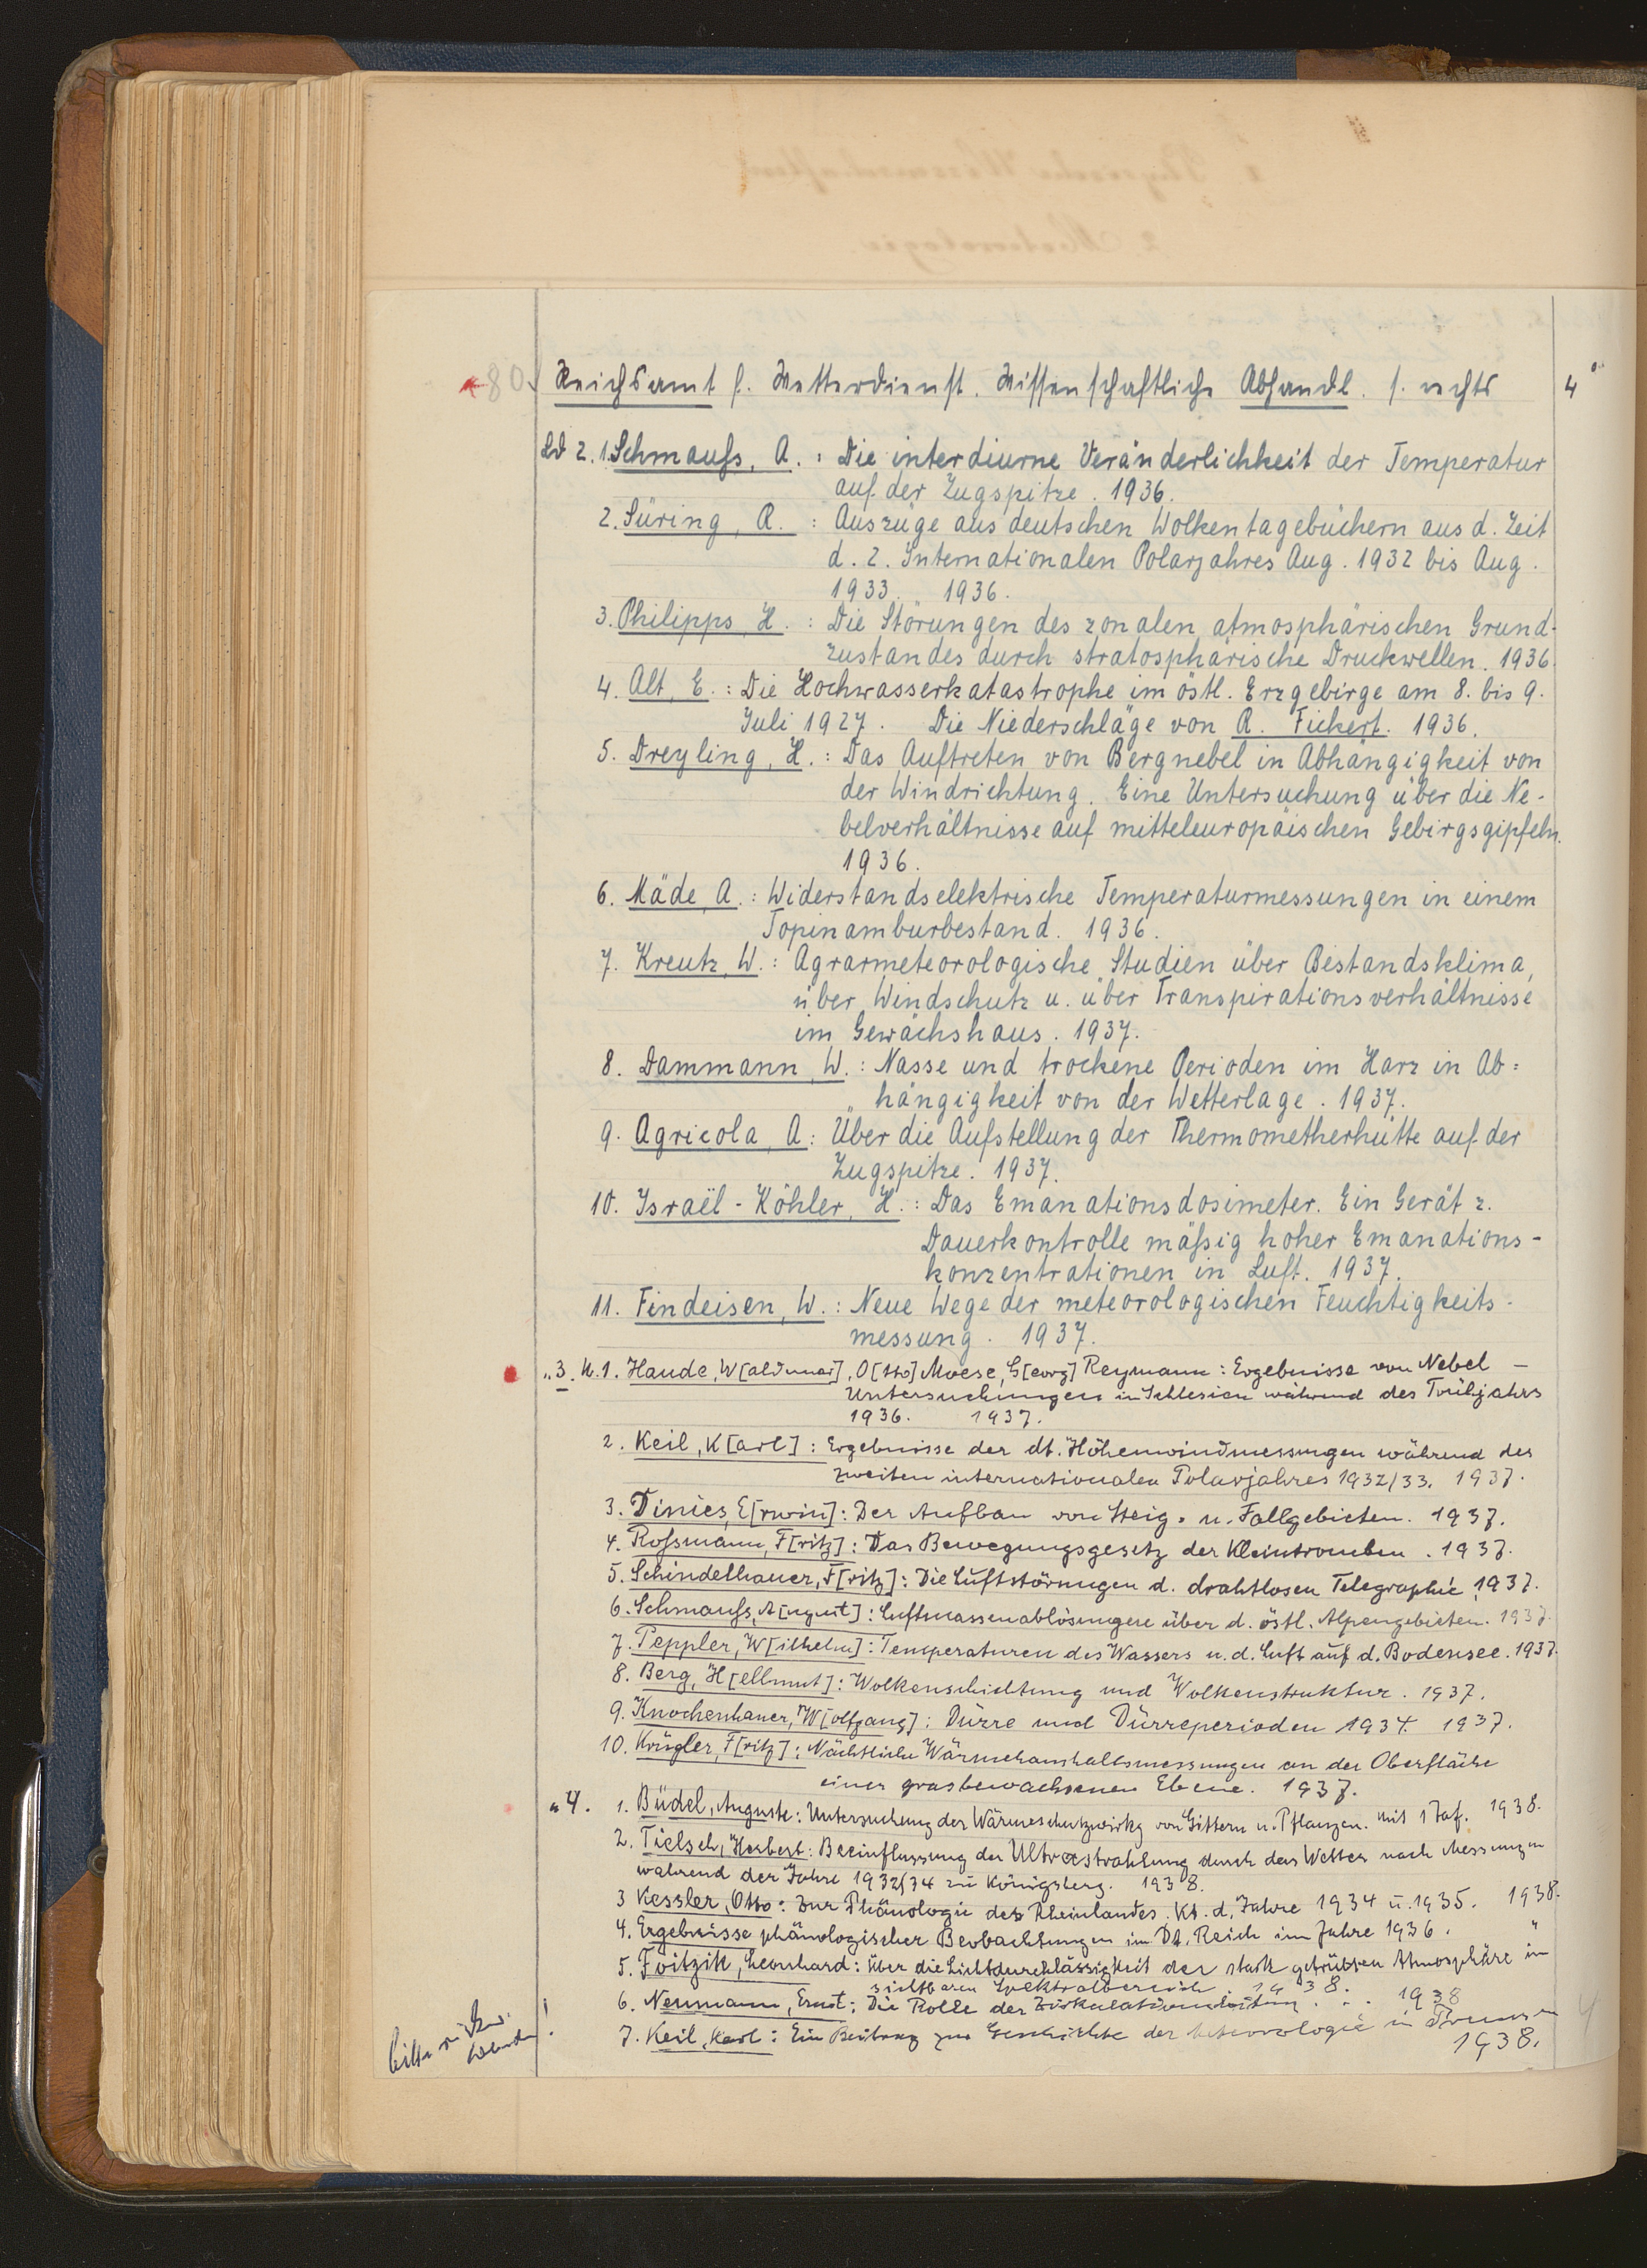 80. Reichsamt f. Wetterdienst. Wissenschaftliche Abhandl. s. rechts 4°
Bd 2. 1. Schmauß, A. : Die interdiurne Veränderlichkeit der Temperatur
auf der Zugspitze. 1936.
2. Süring, R. : Auszüge aus deutschen Wolkentagebüchern aus d. Zeit
d. 2. Internationalen Polarjahres Aug. 1932 bis Aug.
1933. 1936.
3. Philipps, H. : Die Störungen des zonalen atmosphärischen Grund-
zustandes durch stratosphärische Druckwellen. 1936.
4. Alt, E. : Die Hochwasserkatastrophe im östl. Erzgebirge am 8. bis 9.
Juli 1927. Die Niederschläge von R. Fickert. 1936.
5. Dreyling, H. : Das Auftreten von Bergnebel in Abhängigkeit von
der Windrichtung. Eine Untersuchung über die Ne-
belverhältnisse auf mitteleuropäischen Gebirgsgipfeln.
1936.
6. Mäde, A. : Widerstandselektrische Temperaturmessungen in einem
Topinamburbestand. 1936.
7. Kreutz, W. : Agrarmeteorologische Studien über Bestandsklima,
über Windschutz u. über Transpirationsverhältnisse
im Gewächshaus. 1937.
8. Dammann, W. : Nasse und trockene Perioden im Harz in Ab=
hängigkeit von der Wetterlage. 1937.
9. Agricola, A : Über die Aufstellung der Thermometherhütte auf der
Zugspitze. 1937.
10. Israël-Köhler, H. : Das Emanationsdosimeter. Ein Gerät z.
Dauerkontrolle mäßig hoher Emanations-
konzentrationen in Luft. 1937.
11. Findeisen, W. : Neue Wege der meteorologischen Feuchtigkeits-
messung. 1937.
" 3. N. 1. Haude, W[aldemar], O[tto] Moese, G[eorg] Reymann : Ergebnisse von Nebel-
Untersuchungen in Schlesien während des Frühjahrs
1936. 1937.
2. Keil, K[arl] : Ergebnisse der dt. Höhenwindmessungen während des
zweiten internationalen Polarjahres 1932/33. 1937.
3. Dinies, E[rwin] : Der Aufbau von Steig- u. Fallgebieten. 1937.
4. Roßmann, F[ritz] : Das Bewegungsgesetz der Kleintromben. 1937.
5. Schindelhauer, F[ritz] : Die Luftstörungen d. drahtlosen Telegraphie. 1937.
6. Schmauß, A[ugust] : Luftmassenablösungen über d. östl. Alpengebieten. 1937.
7. Peppler, W[ilhelm] : Temperaturen des Wassers u. d. Luft auf d. Bodensee. 1937.
8. Berg, H[ellmut] : Wolkenschichtung und Wolkenstruktur. 1937.
9. Knochenhauer, W[olfgang] : Dürre und Dürreperioden 1934. 1937.
10. Krügler, F[ritz] : Nächtliche Wärmehaushaltsmessungen an der Oberfläche
einer grasbewachsenen Ebene. 1937.
" 4. 1. Büdel, Auguste : Untersuchung der Wärmeschutzwirkg von Gittern u. Pflanzen. Mit 1 Taf. 1938.
2. Tielsch, Herbert : Beeinflussung der Ultrastrahlung durch das Wetter nach Messungen
während der Jahre 1932/34 zu Königsberg. 1938.
3 Kessler, Otto : Zur Phänologie des Rheinlandes. Kt. d. Jahre 1934 u. 1935. 1938.
4. Ergebnisse phänologischer Beobachtungen im Dt. Reich im Jahre 1936. "
5. Foitzik, Leonhard : Über die Lichtdurchlässigkeit der stark getrübten Atmosphäre im
sichtbaren Spektralbereich. 1938.
6. Neumann, Ernst : Die Rolle der . . 1938
7. Keil, Karl : Ein Beitrag zur Geschichte der Meteorologie in Preussen
1938.
bitte wenden!
4